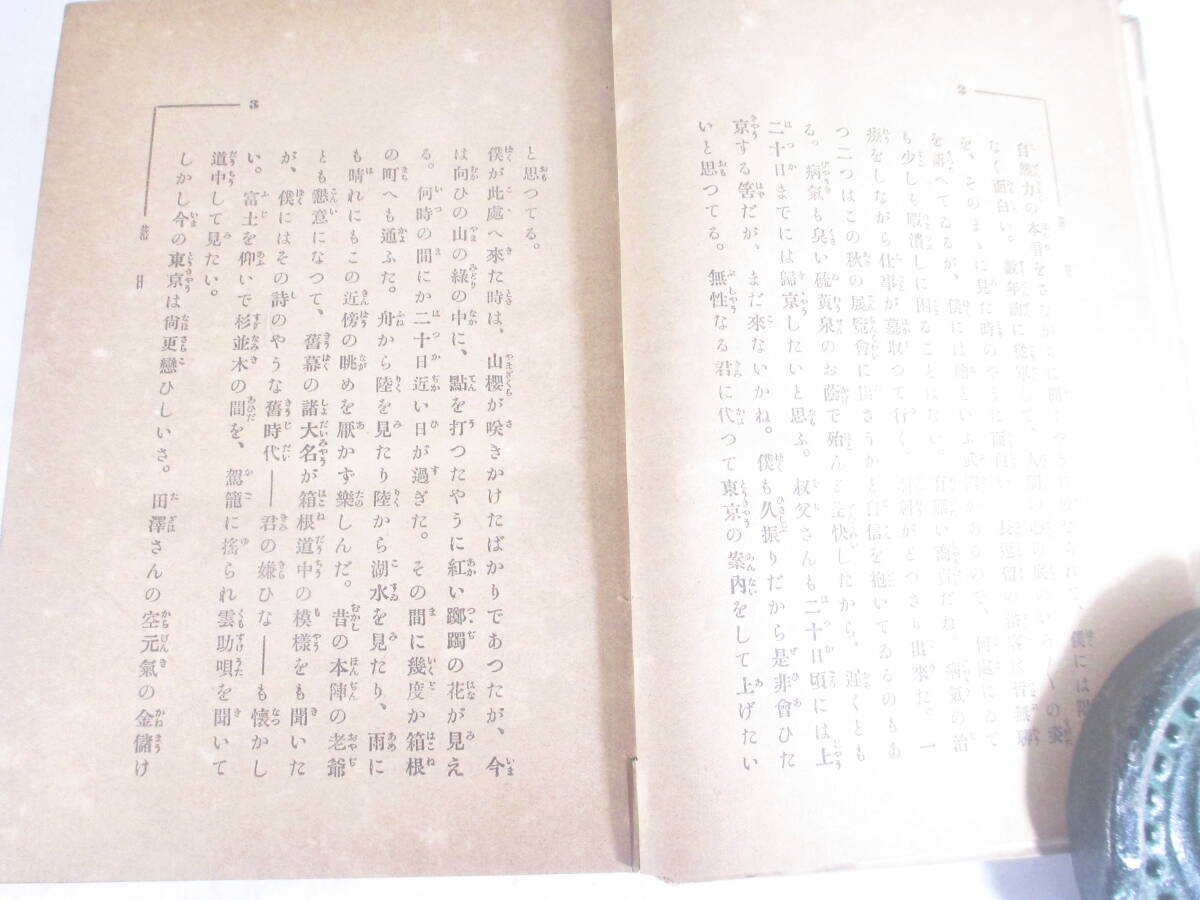 2
僕には
自然力の本音をさながらに聞くやうに感ぜられて、
なく面白い。數年前に從軍して、人間の心の底のいろ〳〵の姿
を、そのまゝに見た時のやうに面白い。長逗留の浴客は皆無聊
を訴へてゐるが、僕には繪といふ武器があるので、何處にゐて
も少しも暇潰しに困ることはない。有難い商賣だね。病氣の治
療をしながら仕事が墓取つて行く。材料がどつさり出來た。一
つ二つはこの秋の展覽會に出さうかと自信を抱いてゐるのもあ
る。病氣も臭い硫黄泉のお蔭で殆んど全快したから、遲くとも
二十日までには歸京したいと思ふ。叔父さんも二十日頃には上
京する筈だが、まだ來ないかね。僕も久振りだから是非會ひた
いと思つてる。無性なる君に代つて東京の案內をして上げたい
3
落日
と思つてる。
僕が此處へ來た時は、山櫻が咲きかけたばかりであつたが、今
は向ひの山の綠の中に、點を打つたやうに紅い躑躅の花が見え
る。何時の間にか二十日近い日が過ぎた。その間に幾度か箱根
の町へも通ふた。舟から陸を見たり陸から湖水を見たり、雨に
も晴れにもこの近傍の眺めを厭かず樂しんだ。昔の本陣の老爺
とも懇意になつて、舊幕の諸大名が箱根道中の模樣をも聞いた
が、僕にはその詩のやうな舊時代――君の嫌ひな――も懷かし
い。富士を仰いで杉並木の間を、駕籠に搖られ雲助唄を聞いて
道中して見たい。
しかし今の東京は尙更戀ひしいさ。田澤さんの空元氣の金儲け